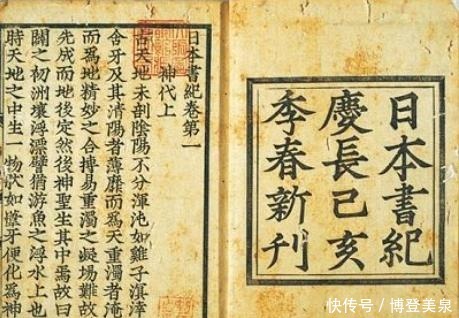 日本書紀
慶長己亥
季春新刊
日本書紀卷第一
神代上
古天地未剖陰陽不分渾沌如雞子溟涬
含牙及其清陽者薄靡而爲天重濁者淹
而爲地精妙之合搏易重濁之凝場難故
先成而地後定然後神聖生其中焉故曰
闢之初洲壤浮漂譬猶游魚之浮水上也
時天地之中生一物狀如葦牙便化爲神
快传号 / 博登美泉